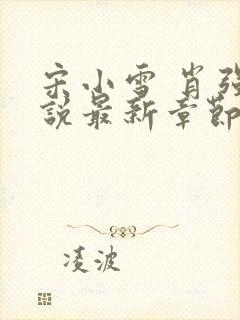 宋小雪 肖强
說最新章節
凌波